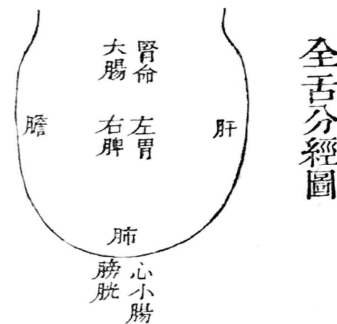 全舌分經圖
腎命
大腸
肝
左胃
右脾
膽
肺
心小腸
膀胱